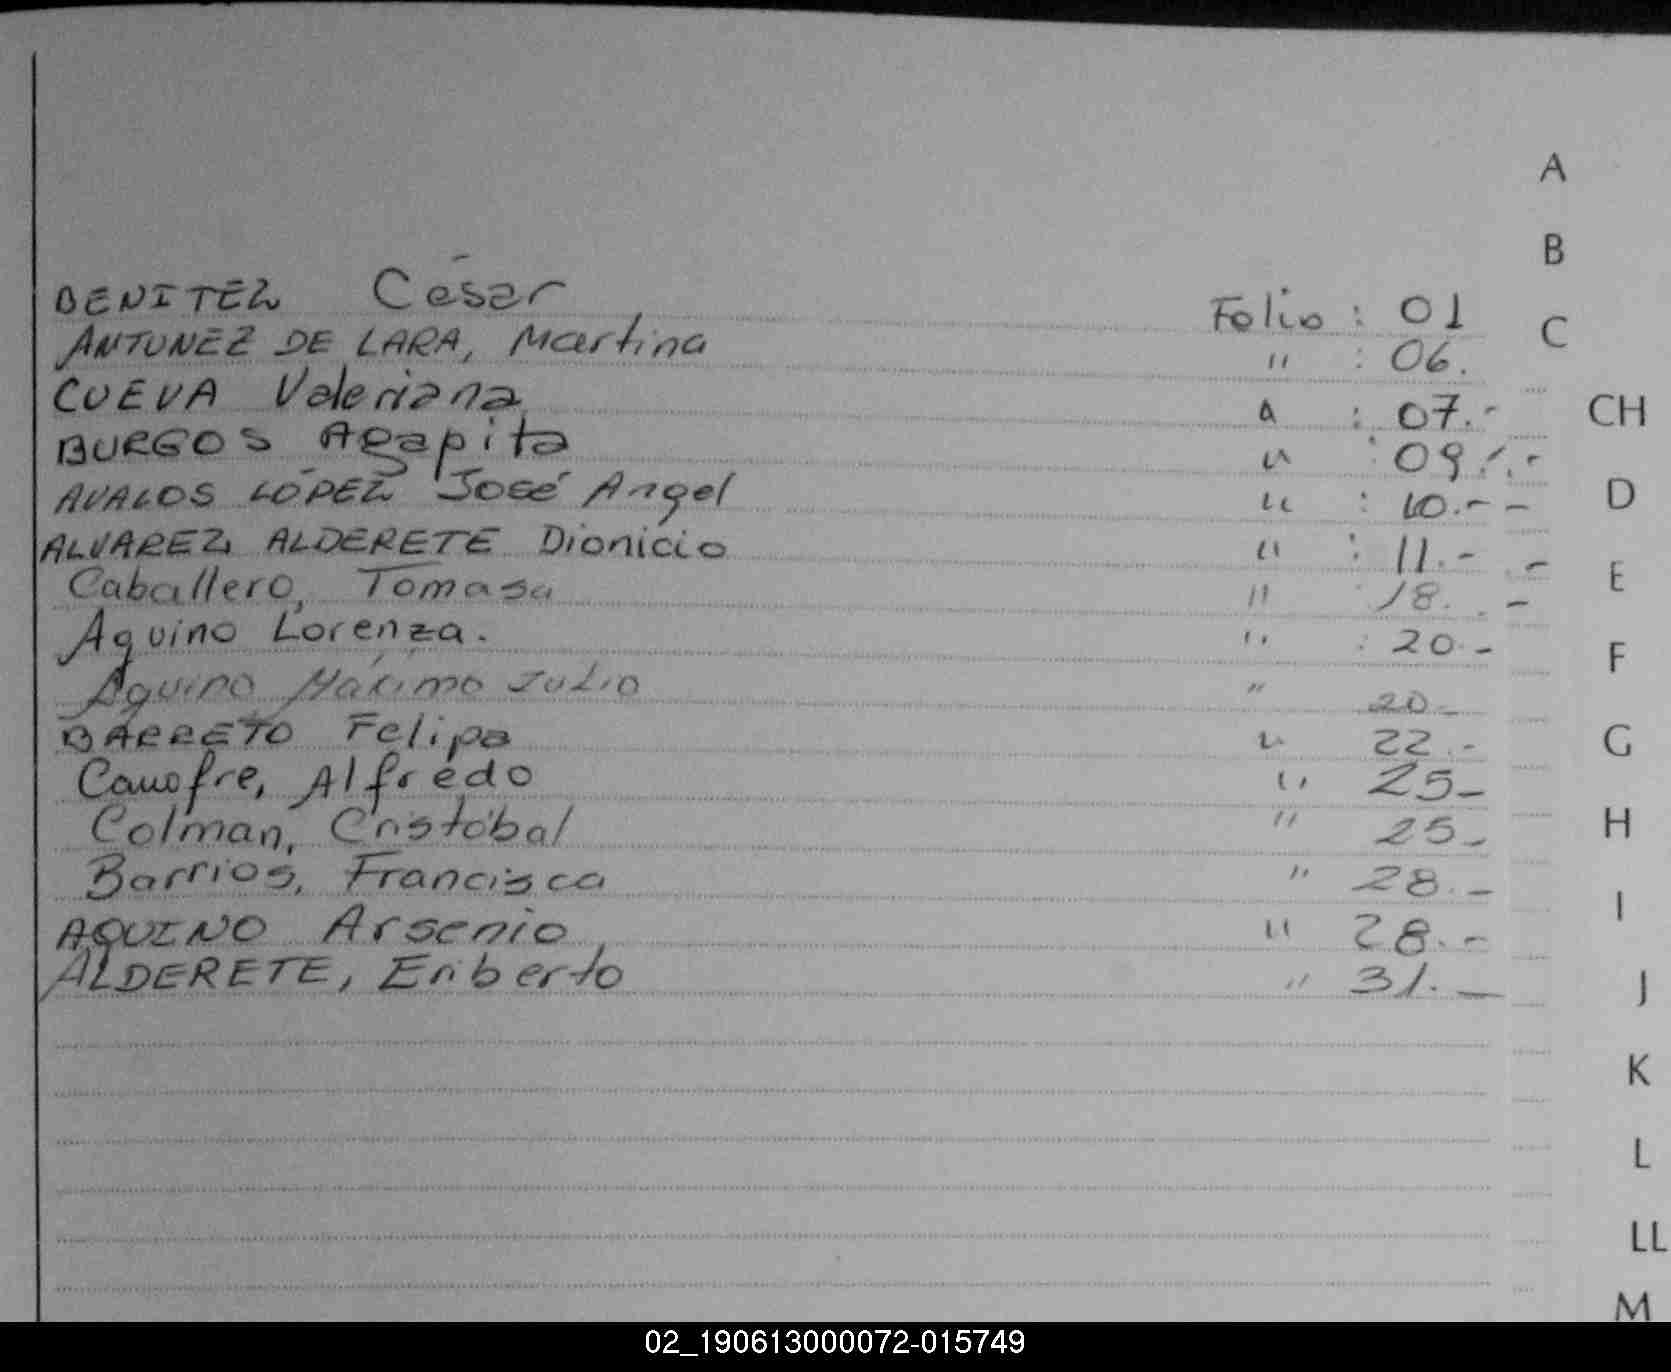 BENITEZ César Folio : 01
ANTUNEZ DE LARA, Martina " : 06.
CUEVA Valeriana " : 07.-
BURGOS Agapita " : 09.-
AVALOS LÓPEZ José Angel " : 10.--
ALVAREZ ALDERETE Dionicio " : 11.- -
Caballero, Tomasa " : 18. . -
Aquino Lorenza. " : 20.-
Aquino Máximo Julio " 20.-
BARRETO Felipa " 22.-
Alfredo " 25-
Colman, Cristóbal " 25-
Barrios, Francisca " 28.-
AQUINO Arsenio, " 28.-
ALDERETE, Eriberto " 31.-
A
B
C
CH
D
E
F
G
H
I
J
K
L
LL
M
02_190613000072-015749